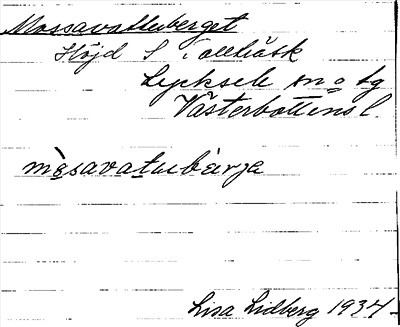 Mossavattuberget
Höjd S
Lycksele sn o tg
Västerbottens l.
mòsavatubärja
Lisa Lidberg 1934